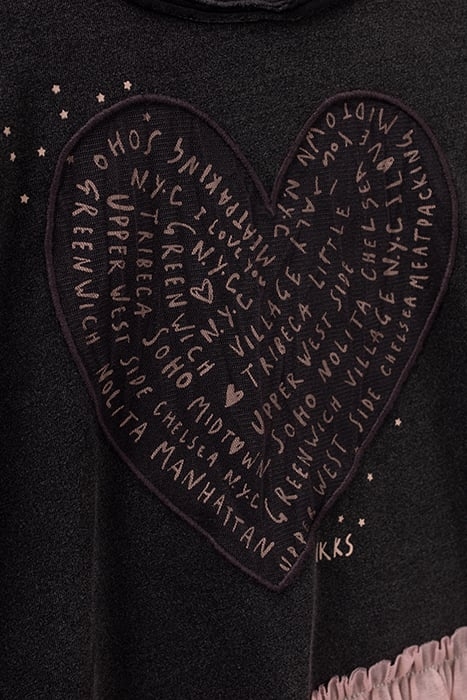 SOHO
GREENWICH NOLITA MANHATTAN
UPPER WEST SIDE CHELSEA N.Y.C
TRIBECA SOHO MIDTOWN
N.Y.C GREENWICH
MEATPAKING
N.Y.C
MEATPAKING
MIDTOWN
I LOVE YOU
N.Y.C
VILLAGE
TRIBECA LITTLE
UPPER WEST SIDE
SOHO NOLITA CHELSEA
GREENWICH VILLAGE N.Y.C I LOVE YOU
UPPER WEST SIDE CHELSEA MEATPACKING MIDTOWN
IKKS